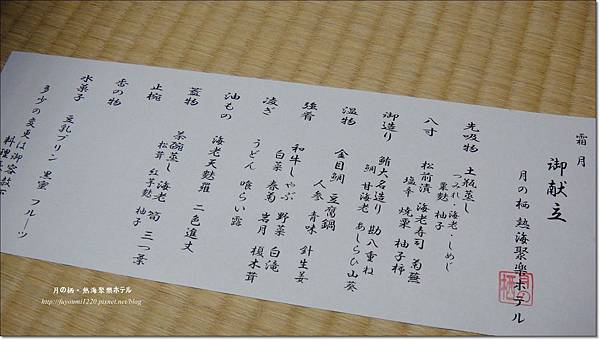 霜月
御献立
月の栖 熱海聚楽ホテル
先吸物 土瓶蒸し
つみれ 海老・しめじ
粟麩 柚子
八寸 松前漬 海老寿司 菊蕪
塩辛 焼栗 柚子柿
御造り 鮪大名造り 勘八重ね
鯛 甘海老 あしらひ 山葵
温物 金目鯛 豆腐鍋
人参 青味 針生姜
強肴 和牛しゃぶ 野菜 白滝
白菜 春菊 占地 榎木茸
凌ぎ うどん 喰らい露
油もの 海老天麩羅 二色進丈
蓋物 茶碗蒸し 海老 筍 三つ葉
止椀 松茸 紅手毬 柚子
香の物
水菓子 豆乳プリン 黒蜜 フルーツ
多少の変更は御容赦
料理長
月の栖
月の栖・熱海聚樂ホテル
http://fuyonmi1220.pixnet.net/blog